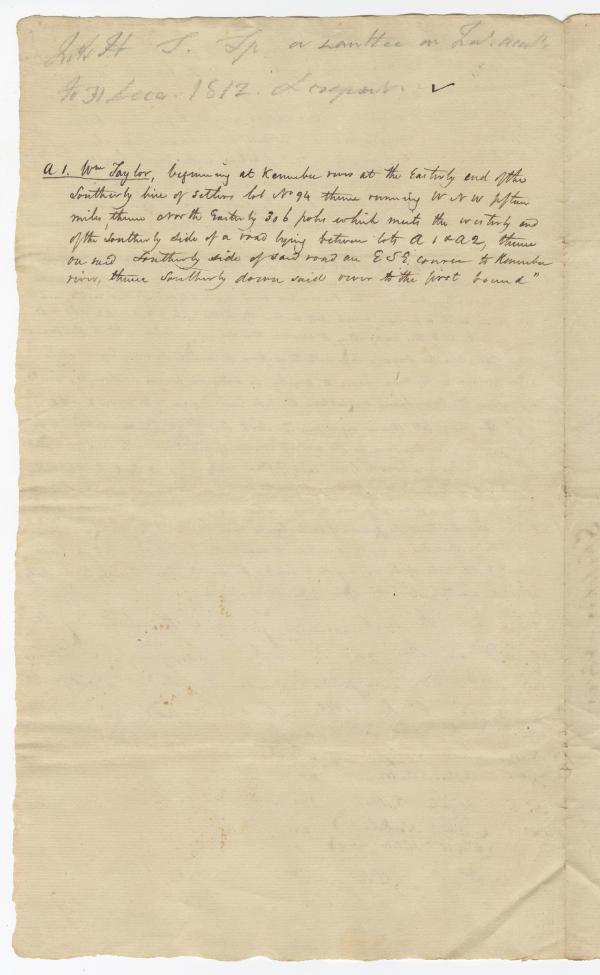 to 31 Decr. 1812.
A 1. Wm Taylor, beginning at Kennebec river at the Easterly end of the
Southerly line of settlers lot No 94 thence running W N W fifteen
miles, thence North Easterly 306 poles which meets the westerly end
of the Southerly side of a road lying between lots A 1 & A 2, thence
on said Southerly side of said road an E S E. course to Kennebec
river, thence Southerly down said river to the first bound"